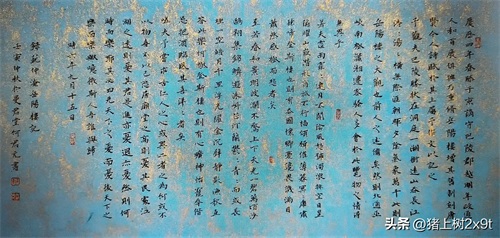 慶曆四年春滕子京謫守巴陵郡越明年政通
人和百廢具興乃重修岳陽樓增其舊制刻唐
賢今人詩賦於其上屬予作文以記之
予觀夫巴陵勝狀在洞庭一湖銜遠山吞長江
浩浩湯湯橫無際涯朝暉夕陰氣象萬千此則
岳陽樓之大觀也前人之述備矣然則北通巫
峽南極瀟湘遷客騷人多會於此覽物之情得
無異乎
若夫霪雨霏霏連月不開陰風怒號濁浪排空日星
隱曜山岳潛形商旅不行檣傾楫摧薄暮冥冥虎嘯
猿啼登斯樓也則有去國懷鄉憂讒畏譏滿目
蕭然感極而悲者矣
至若春和景明波瀾不驚上下天光一碧萬頃沙
鷗翔集錦鱗游泳岸芷汀蘭郁郁青青而或長
煙一空皓月千里浮光躍金靜影沉璧漁歌互
答此樂何極登斯樓也則有心曠神怡寵辱偕
忘把酒臨風其喜洋洋者矣
嗟夫予嘗求古仁人之心或異二者之為何哉不
以物喜不以己悲居廟堂之高則憂其民處江
湖之遠則憂其君是進亦憂退亦憂然則何
時而樂耶其必曰先天下之憂而憂後天下之
樂而樂乎噫微斯人吾誰與歸
時六年九月十五日
錄范仲淹岳陽樓記
壬寅中秋
头条 @猪上树2x9t